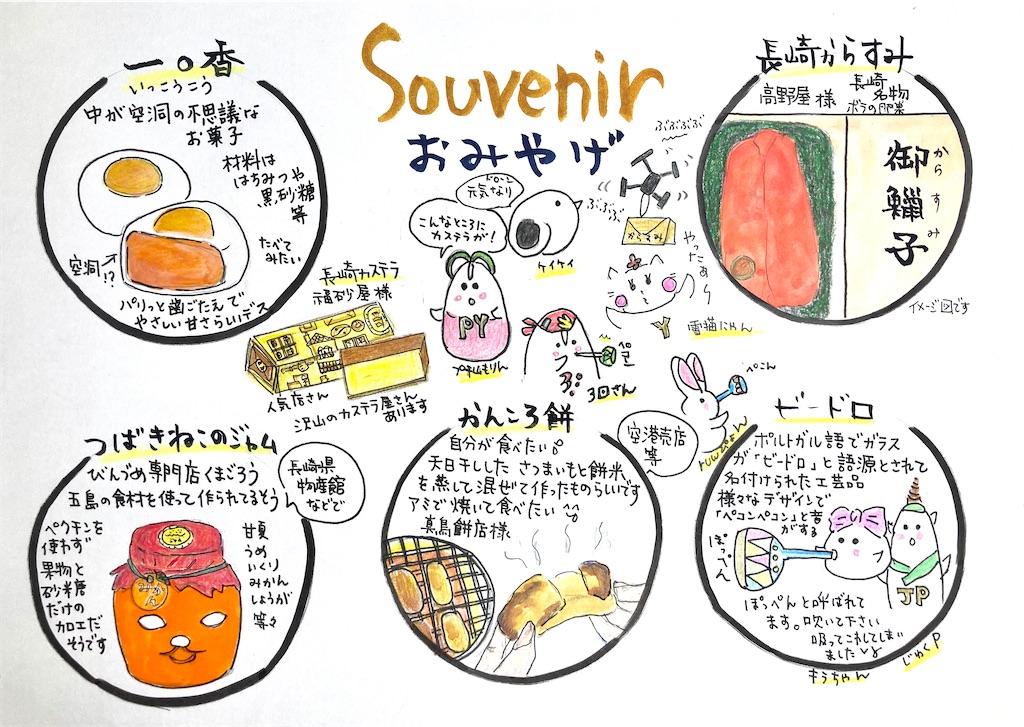 Souvenir
おみやげ
一〇香
いっこうこう
中が空洞の不思議な
お菓子
材料は
はちみつや
黒砂糖
等
たべて
みたい
空洞!?
パリっと歯ごたえで
やさしい甘さらしいデス
長崎カステラ
福砂屋様
人気店さん
沢山のカステラ屋さん
あります
こんなところに
カステラが!
PY
ドローン
元気なり
ケイケイ
ぶぶぶぶ
ぶぶぶ
からすみ
やったぁー
雲猫にゃん
ペコ
3回さん
長崎からすみ
高野屋様
長崎
名物
ボラの卵巣
御鱲子
からすみ
イメージ図です
つばきねこのジャム
びんづめ専門店くまごろう
五島の食材を使って作られてるそう
ペクチンを
使わず
果物と
砂糖
だけの
加工だ
そうです
みかん
甘夏
うめ
いくり
みかん
しょうが
等々
長崎県
物産館
などで
かんころ餅
自分が食べたい。
天日干しした さつまいもと餅米
を蒸して混ぜて作ったものらしいです
アミで焼いて食べたい
真鳥餅店様
空港売店
等
ぺこん
runぴょん
ビードロ
ポルトガル語でガラス
が「ビードロ」と語源とされて
名付けられた工芸品
様々なデザインで
「ペコンペコン」と音
がする
ぽっぺん
JP
ぽっぺんと呼ばれて
ます。吹いて下さい
吸ってこわしてしまい
ました
もうちゃん
じゅくP